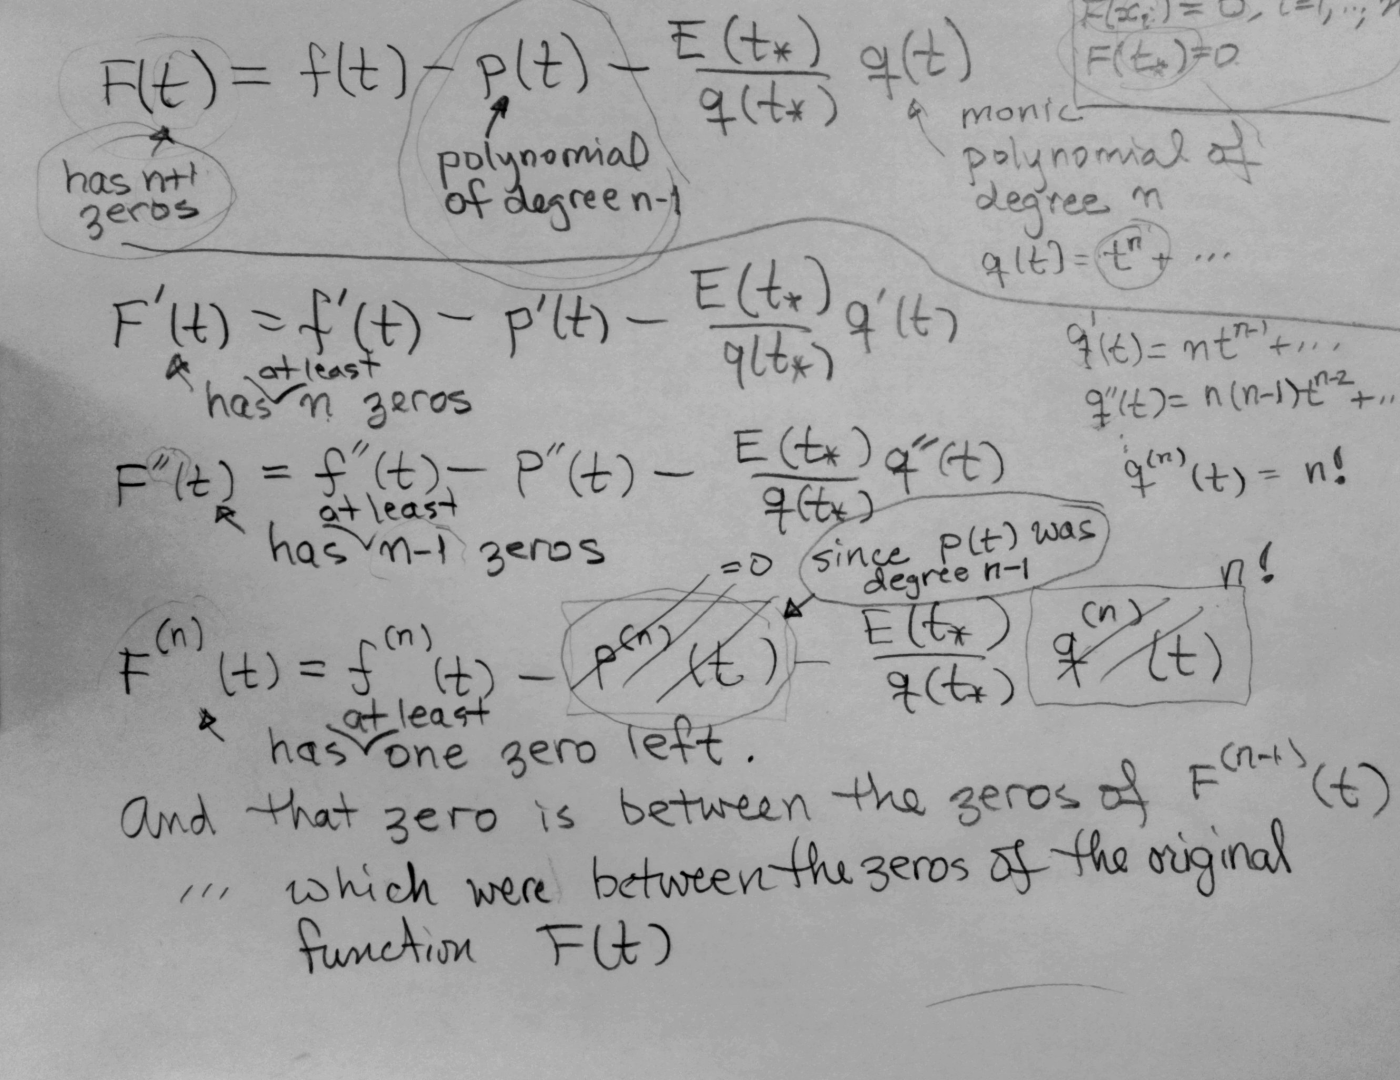 F(xᵢ) = 0, i=1, ..,
F(t*)=0
F(t) = f(t) - p(t) - E(t*)/q(t*) q(t)
has n+1
zeros
polynomial
of degree n-1
monic
polynomial of
degree n
q(t) = tⁿ + ...
F'(t) = f'(t) - p'(t) - E(t*)/q(t*) q'(t)
at least
has n zeros
q'(t) = n tⁿ⁻¹ + ...
q''(t) = n(n-1) tⁿ⁻² + ..
q⁽ⁿ⁾(t) = n!
F''(t) = f''(t) - p''(t) - E(t*)/q(t*) q''(t)
at least
has n-1 zeros
=0
since p(t) was
degree n-1
n!
F⁽ⁿ⁾(t) = f⁽ⁿ⁾(t) - p⁽ⁿ⁾(t) - E(t*)/q(t*) q⁽ⁿ⁾(t)
at least
has one zero left.
And that zero is between the zeros of F⁽ⁿ⁻¹⁾(t)
... which were between the zeros of the original
function F(t)